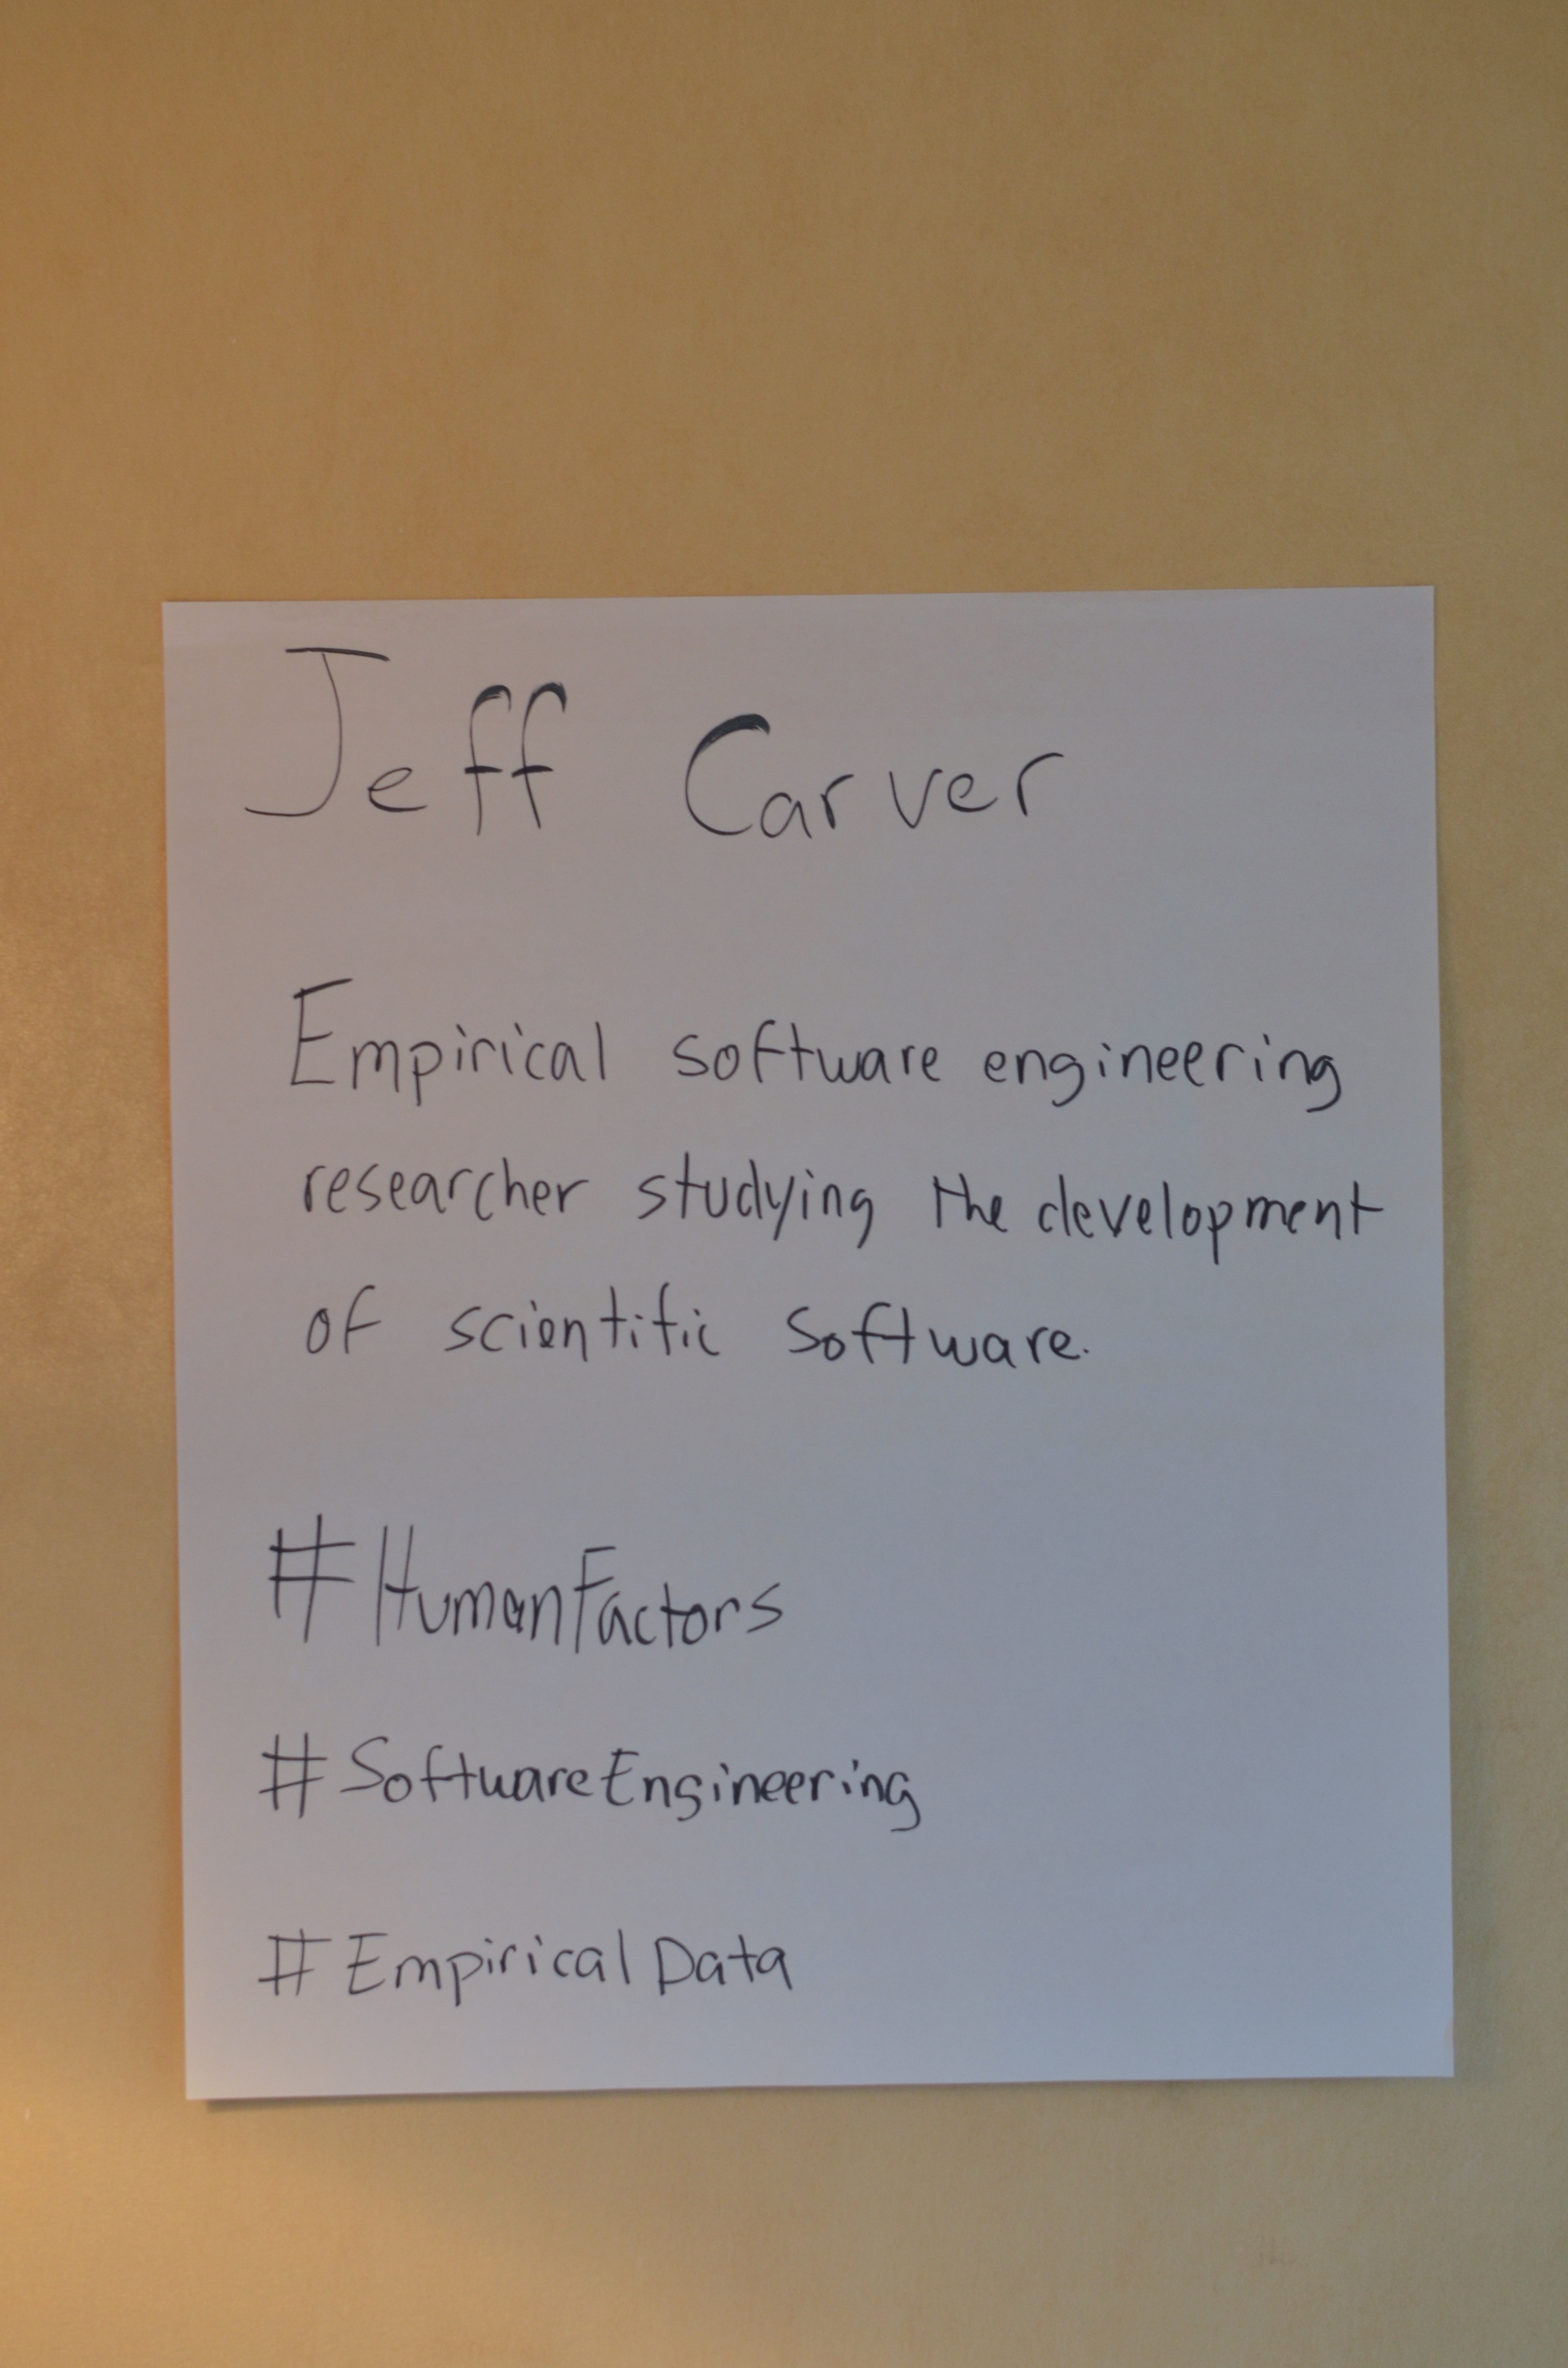 Jeff Carver
Empirical software engineering
researcher studying the development
of scientific software.
#HumanFactors
#SoftwareEngineering
#EmpiricalData